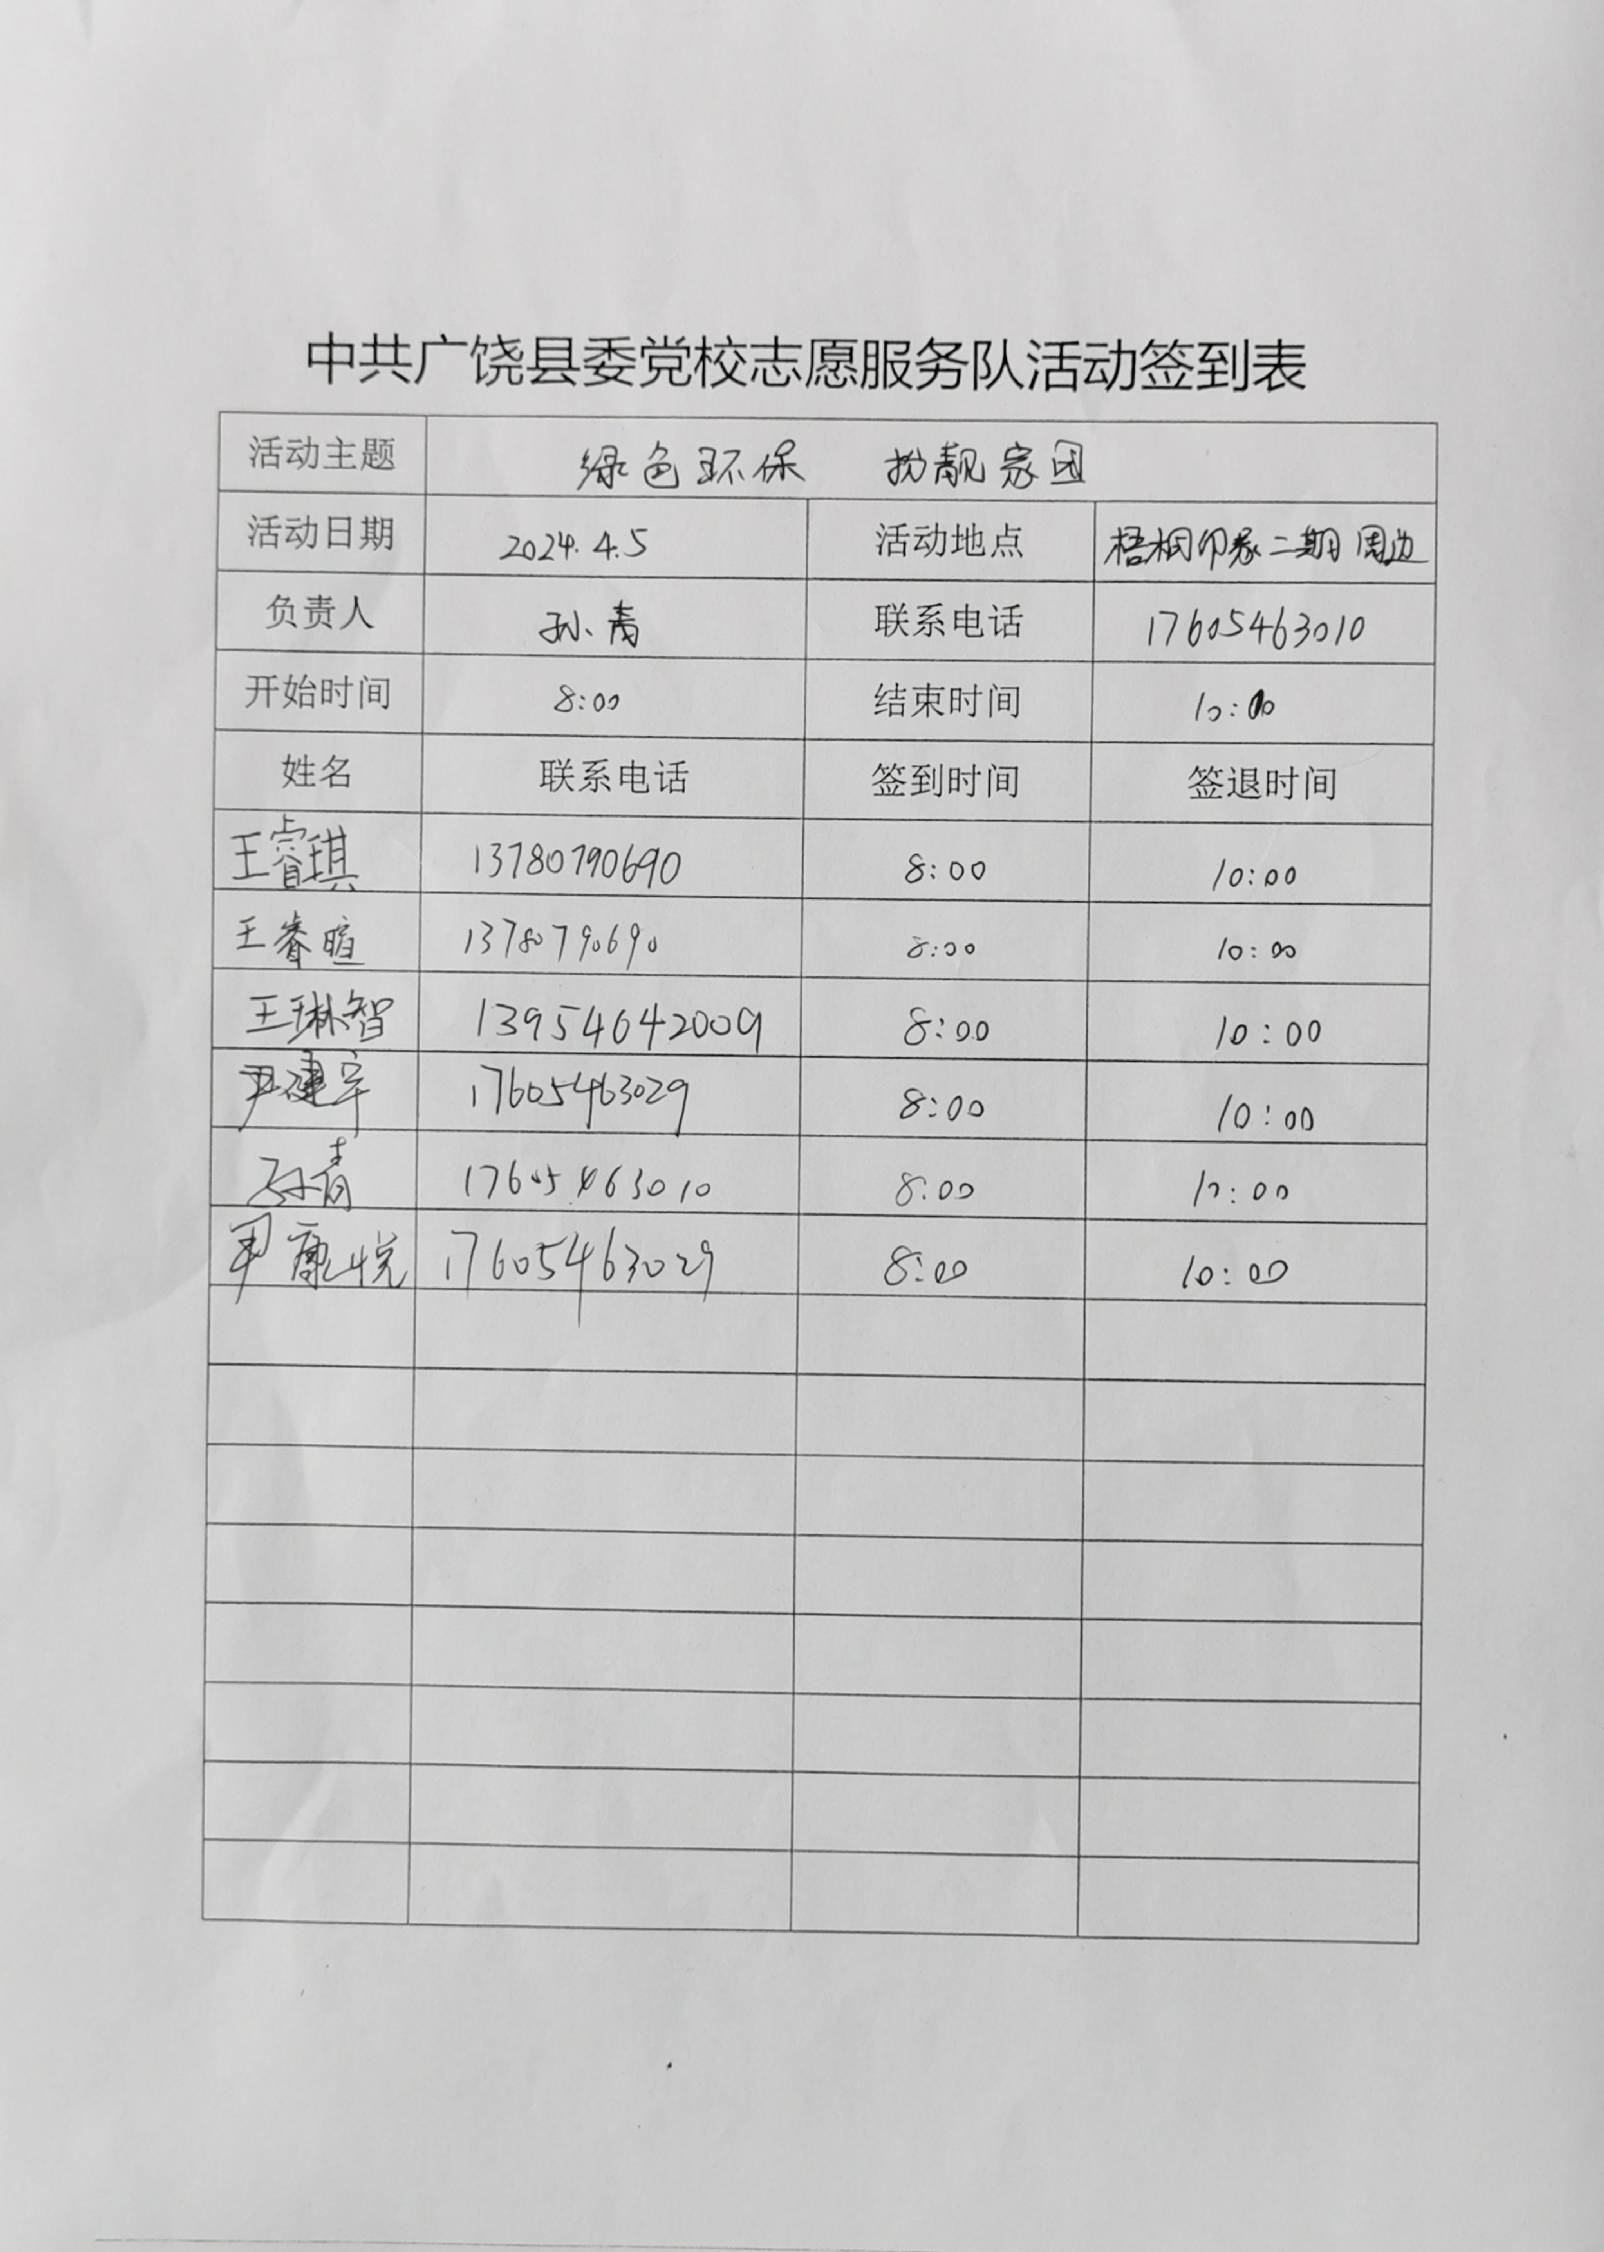 中共广饶县委党校志愿服务队活动签到表
活动主题 绿色环保 扮靓家园
活动日期 2024.4.5 活动地点 梧桐印象二期周边
负责人 孙青 联系电话 17605463010
开始时间 8:00 结束时间 10:00
姓名 联系电话 签到时间 签退时间
王睿琪 13780790690 8:00 10:00
王睿暄 13780790690 8:00 10:00
王琳智 13954642009 8:00 10:00
尹建军 17605463029 8:00 10:00
孙青 17605463010 8:00 10:00
尹康悦 17605463029 8:00 10:00